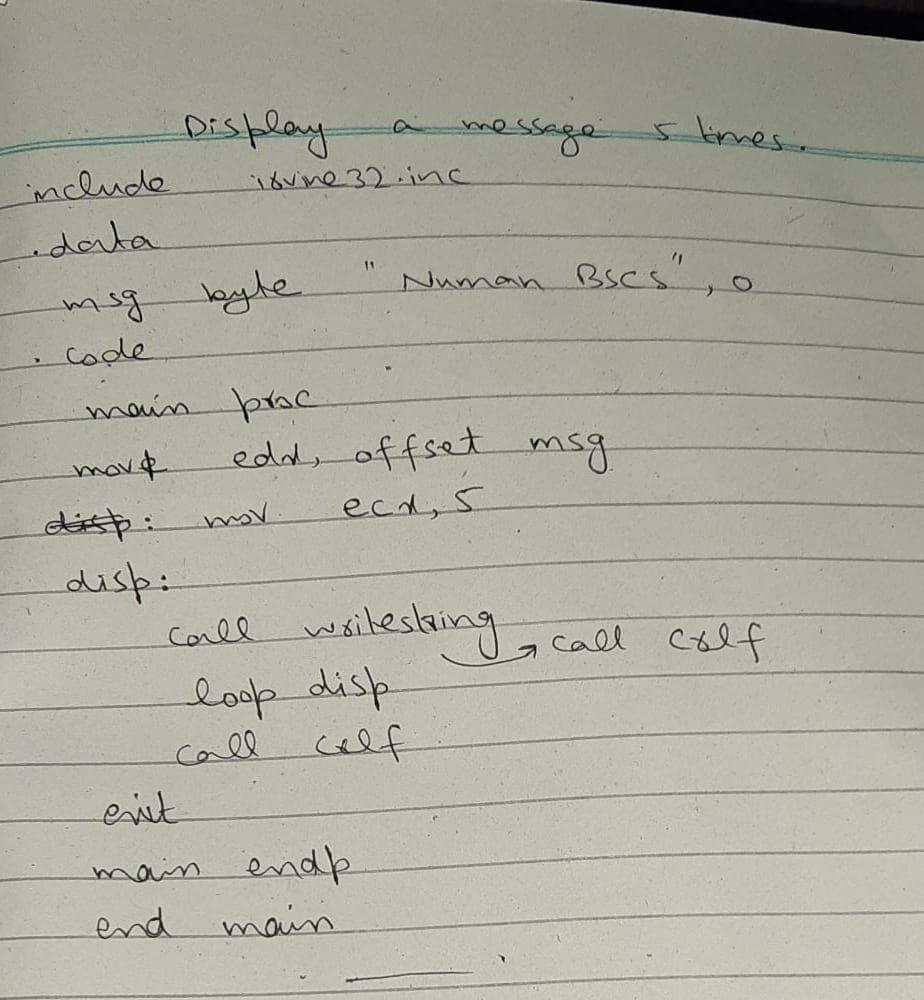 Display a message 5 times.
include irvine32.inc
.data
msg byte "Numan BSCS", 0
.code
main proc
mov edx, offset msg
disp: mov ecx, 5
disp:
call writestring → call crlf
loop disp
call crlf
exit
main endp
end main